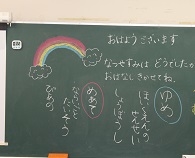 おはようございます
なつやすみは どうでしたか
おはなしきかせてね。
ゆめ
ほいくえんの
せんせい
しょうぼうし
めあて
たいそう
ぴあの